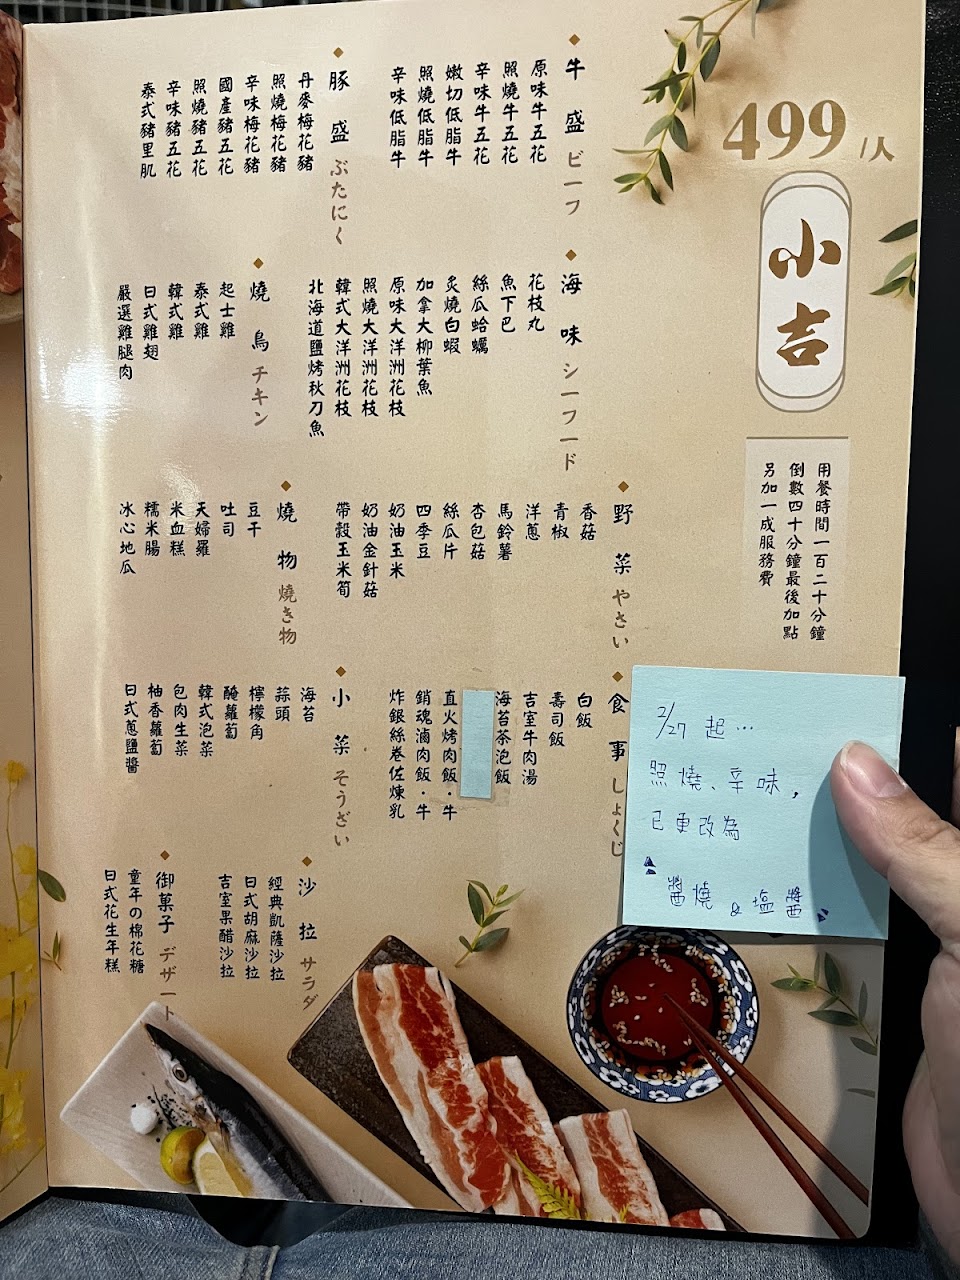 499/人
小吉
用餐時間一百二十分鐘
倒數四十分鐘最後加點
另加一成服務費
牛盛 ビーフ
原味牛五花
照燒牛五花
辛味牛五花
嫩切低脂牛
照燒低脂牛
辛味低脂牛
豚盛 ぶたにく
丹麥梅花豬
照燒梅花豬
辛味梅花豬
國產豬五花
照燒豬五花
辛味豬五花
泰式豬里肌
海味 シーフード
花枝丸
魚下巴
絲瓜蛤蠣
炙燒白蝦
加拿大柳葉魚
原味大洋洲花枝
照燒大洋洲花枝
韓式大洋洲花枝
北海道鹽烤秋刀魚
燒鳥 チキン
起士雞
泰式雞
韓式雞
日式雞翅
嚴選雞腿肉
野菜 やさい
香菇
青椒
洋蔥
馬鈴薯
杏包菇
絲瓜片
四季豆
奶油玉米
奶油金針菇
帶殼玉米筍
燒物 燒き物
豆干
吐司
天婦羅
米血糕
糯米腸
冰心地瓜
食事 しょくじ
白飯
壽司飯
吉室牛肉湯
海苔茶泡飯
直火烤肉飯・牛
銷魂滷肉飯・牛
炸銀絲卷佐煉乳
小菜 そうざい
海苔
蒜頭
檸檬角
醃蘿蔔
韓式泡菜
包肉生菜
柚香蘿蔔
日式蔥鹽醬
沙拉 サラダ
經典凱薩沙拉
日式胡麻沙拉
吉室果醋沙拉
御菓子 デザート
童年の棉花糖
日式花生年糕
2/27 起…
照燒、辛味，
已更改為
醬燒 & 塩醬